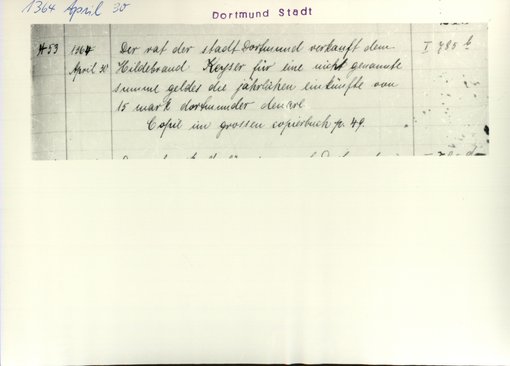 1364 April 30
Dortmund Stadt
453 1364 Der rat der stadt Dortmund verkauft dem I 785 b
April 30 Hildebrand Keyser für eine nicht genannte
summe geldes die jährlichen einkünfte von
15 mark dortmunder
Copie im grossen copierbuch p. 49.